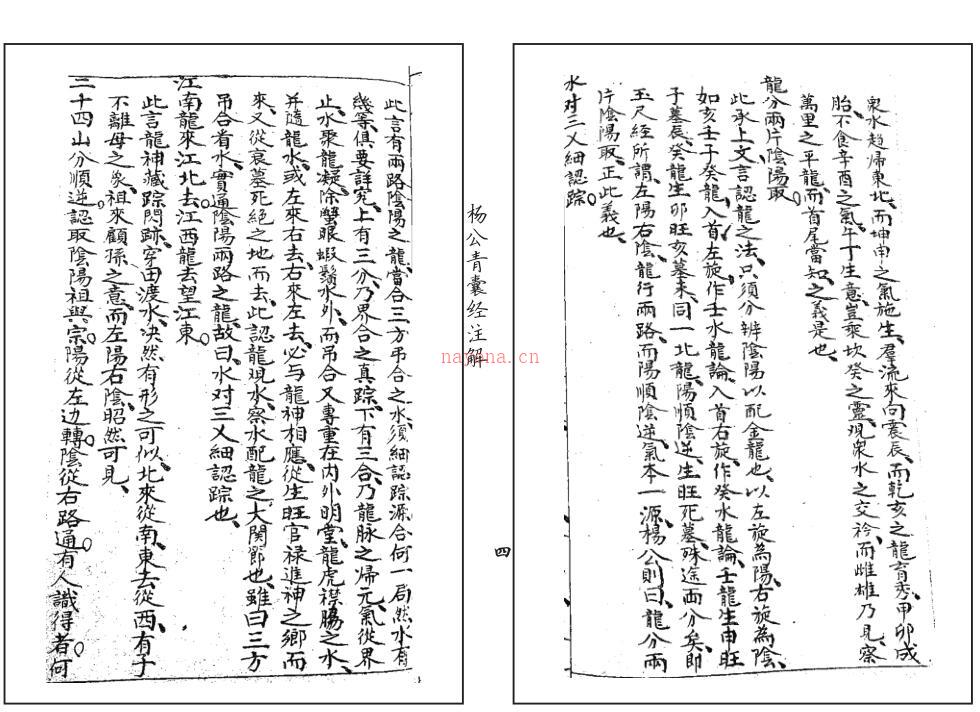 泉水趨帰東北、而坤申之氣施生、羣流來向震辰、而乾亥之龍育秀、甲卯成
胎、不食辛酉之氣、午丁生意、豈乘坎癸之靈、現衆水之交衿、而雌雄乃見、察
萬里之平龍、而首尾當知、之義是也、
龍分兩片陰陽取。
此承上文言認龍之法、只須分辨陰陽以配金龍也、以左旋為陽、右旋為陰、
如亥壬子癸龍、入首左旋、作壬水龍論、入首右旋、作癸水龍論、壬龍生申旺
子墓辰、癸龍生卯旺亥墓未、同一北龍、陽順陰逆、生旺死墓、殊途而分矣、即
玉尺經所謂、左陽右陰、龍行兩路、而陽順陰逆、氣本一源、楊公則曰、龍分兩
片陰陽取、正此義也、
水对三乂細認踪。
杨公青囊经注解
四
nayona.cn
此言有兩路陰陽之龍、當合三方吊合之水、須細認踪源合何一局、然水有
幾等、俱要詳究、上有三分、乃界合之真踪、下有三合、乃龍脉之帰元、氣從界
止、水聚龍凝、除蟹眼蝦鬚水外、而吊合又專重在内外明堂、龍虎襟腸之水、
并隨龍水、或左來右去、右來左去、必与龍神相應、從生旺官禄進神之鄉而
來、又從衰墓死絕之地而去、此認龍現水、察水配龍之大関節也、雖曰三方
吊合省水、實通陰陽兩路之龍、故曰、水对三乂細認踪也、
江南龍來江北去。江西龍去望江東。
此言龍神藏踪閃跡、穿田渡水、决然有形之可似、北來從南、東去從西、有子
不離母之象、祖來顧孫之意、而左陽右陰、昭然可見、
二十四山分順逆。認取陰陽祖與宗。陽從左边轉。陰從右路通。有人識得者。何